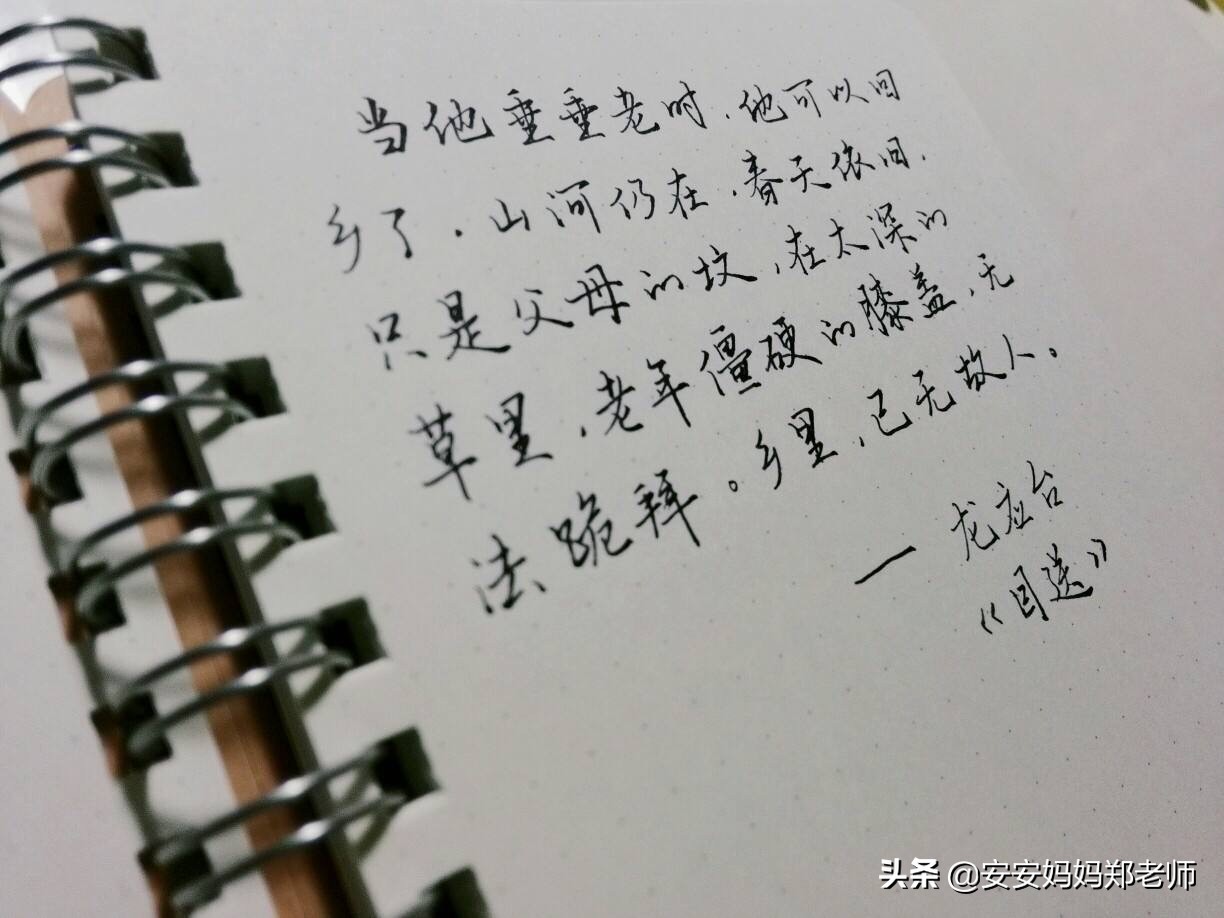 当他垂垂老时，他可以回
乡了，山河仍在，春天依旧，
只是父母的坟，在太深的
草里，老年僵硬的膝盖，无
法跪拜。乡里，已无故人。
— 龙应台
《目送》
头条 @安安妈妈郑老师